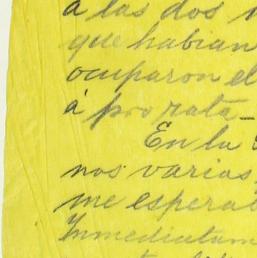 á las dos
que habian
ocuparon el
á pro rata
En la
nos varias
me espera
Inmediatam